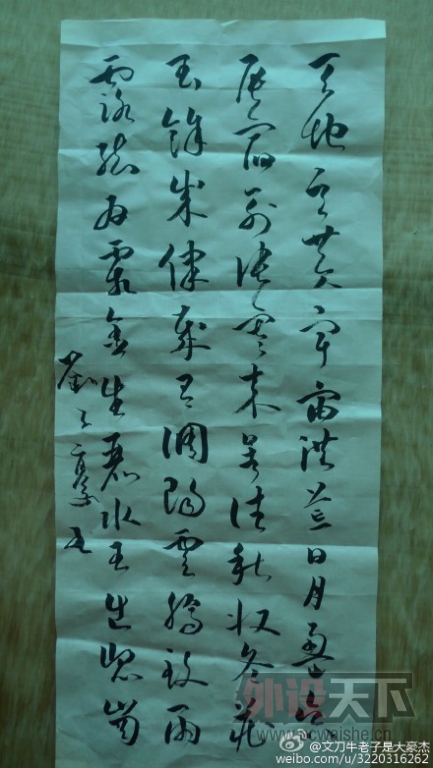 天地玄黄宇宙洪荒日月盈昃
辰宿列張寒来暑往秋收冬藏
閏餘成律歲呂調陽雲騰致雨
露結為霜金生麗水玉出崑崗
外设天下
@文刀牛老子是大豪杰
weibo.com/u/3220316262